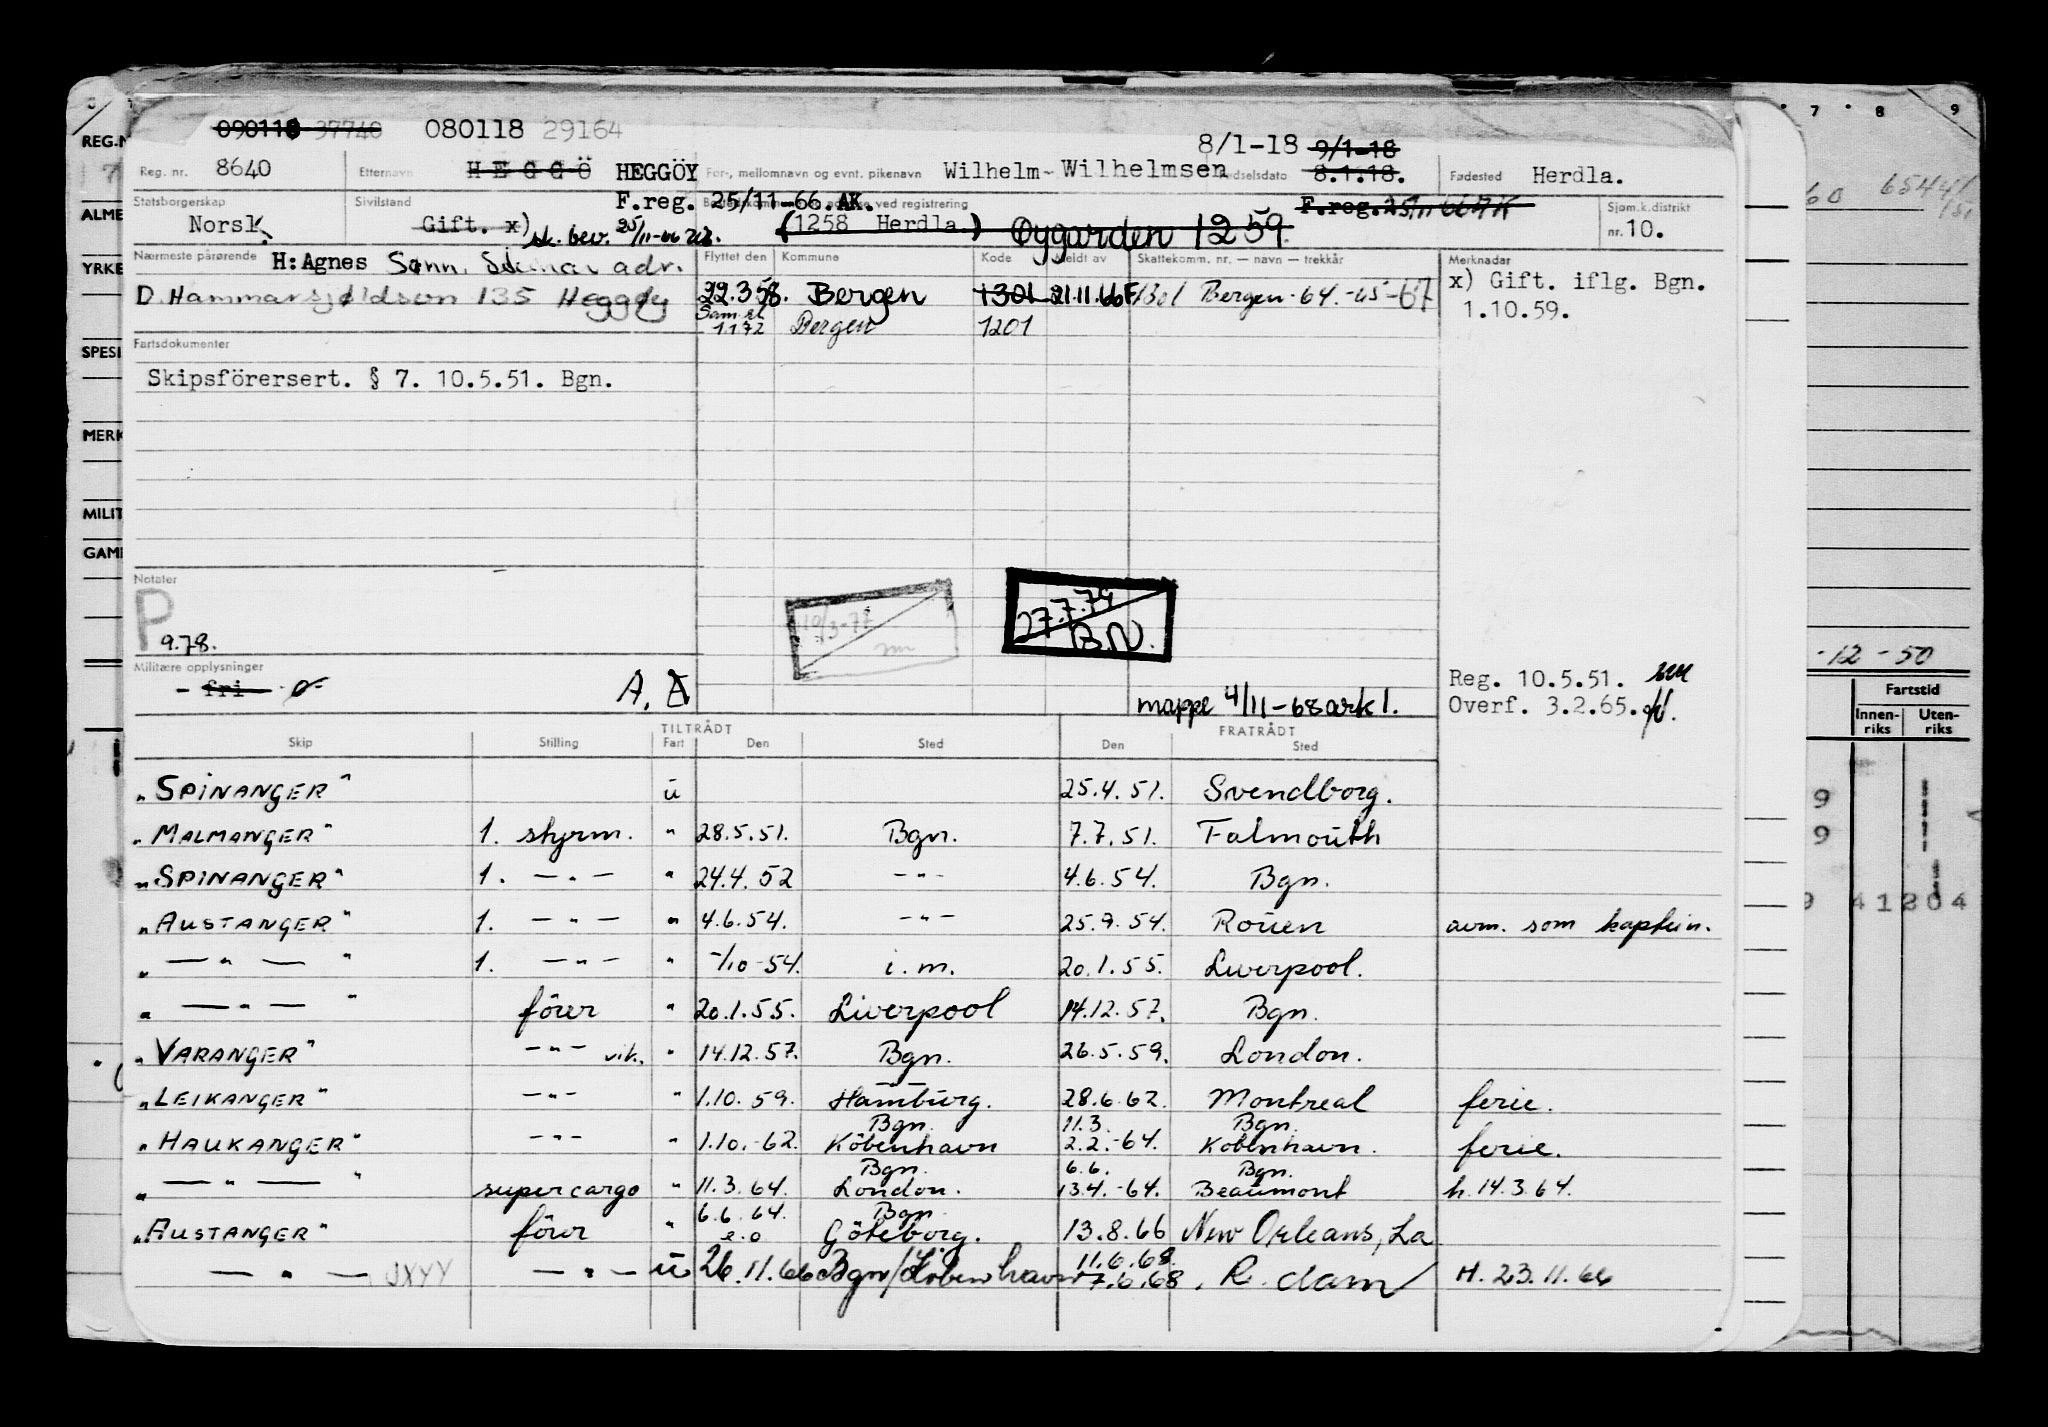 090118 37740 080118 29164
Reg. nr. 8640 Etternavn HEGGÖ HEGGÖY For-, mellomnavn og evnt. pikenavn Wilhelm Wilhelmsen Fødselsdato 8/1-18 9/1-18 8.1.18. Fødested Herdla.
Statsborgerskap Norsk Sivilstand Gift. x) F.reg. 25/11-66.AK. ved registrering (1258 Herdla.) Øygarden 1259 F.reg. Sjøm.k.distrikt nr. 10.
Nærmeste pårørende H:Agnes adr. Flyttet den Kommune Kode Meldt av Skattekomm. nr. — navn — trekkår Merknadar
135 Heggøy 22.3.58. Bergen 1301 21.11.66 F 1301 Bergen-64.-65-67 x) Gift. iflg. Bgn.
1172 Bergen 1201 1.10.59.
Fartsdokumenter
Skipsförersert. § 7. 10.5.51. Bgn.
Notater
P
9.78.
10/3-77
27.7.79
B.N.
Militære opplysninger
- fri -
A.
mappe 4/11-68 ark 1.
Reg. 10.5.51.
Overf. 3.2.65.
TILTRÅDT FRATRÅDT
Skip Stilling Fart Den Sted Den Sted
"SPINANGER" u 25.4.51. Svendborg.
"MALMANGER" 1. styrm. " 28.5.51. Bgn. 7.7.51. Falmouth
"SPINANGER" 1. —"— " 24.4.52 —"— 4.6.54. Bgn.
"AUSTANGER" 1. —"— " 4.6.54. —"— 25.9.54. Rouen avm. som kaptein.
" —"— " 1. —"— " -/10-54. i.m. 20.1.55. Liverpool.
" —"— " förer " 20.1.55. Liverpool 14.12.57. Bgn.
"VARANGER" —"— vik. " 14.12.57. Bgn. 26.5.59. London.
"LEIKANGER" —"— " 1.10.59. Hamburg. 28.6.62. Montreal ferie.
"HAUKANGER" —"— " 1.10.-62. Bgn. København 11.3. 2.2.-64. Bgn. København. ferie.
" —"— " supercargo " 11.3.64. Bgn. London. 6.6. 13.4.-64. Bgn. Beaumont h. 14.3.64.
"AUSTANGER" förer " 6.6.64. e.o Bgn. Göteborg. 13.8.66 New Orleans, La
—"— JXYY —"— u 26.11.66 Bgn/København 11.6.68. 7.6.68. R.dam H. 23.11.66
7 8 9
REG.N
ALME
YRKE
SPESI
MERK
MILIT
GAM
-12-50
Fartstid
Innen-riks Uten-riks
9
9
9 41204